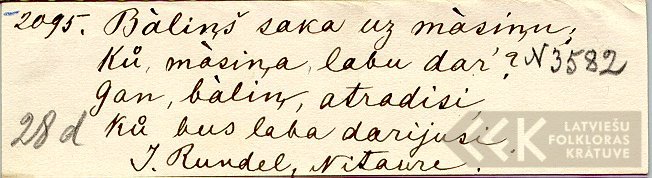 2095. Bàliņš saka uz màsiņu;
Ků, màsiņa, labu dar'? N3582
Gan, bàliņ, atradisi,
28d Ků bus laba darijusi.
J. Rundel, Nitaure.
LATVIEŠU
FOLKLORAS
KRĀTUVE